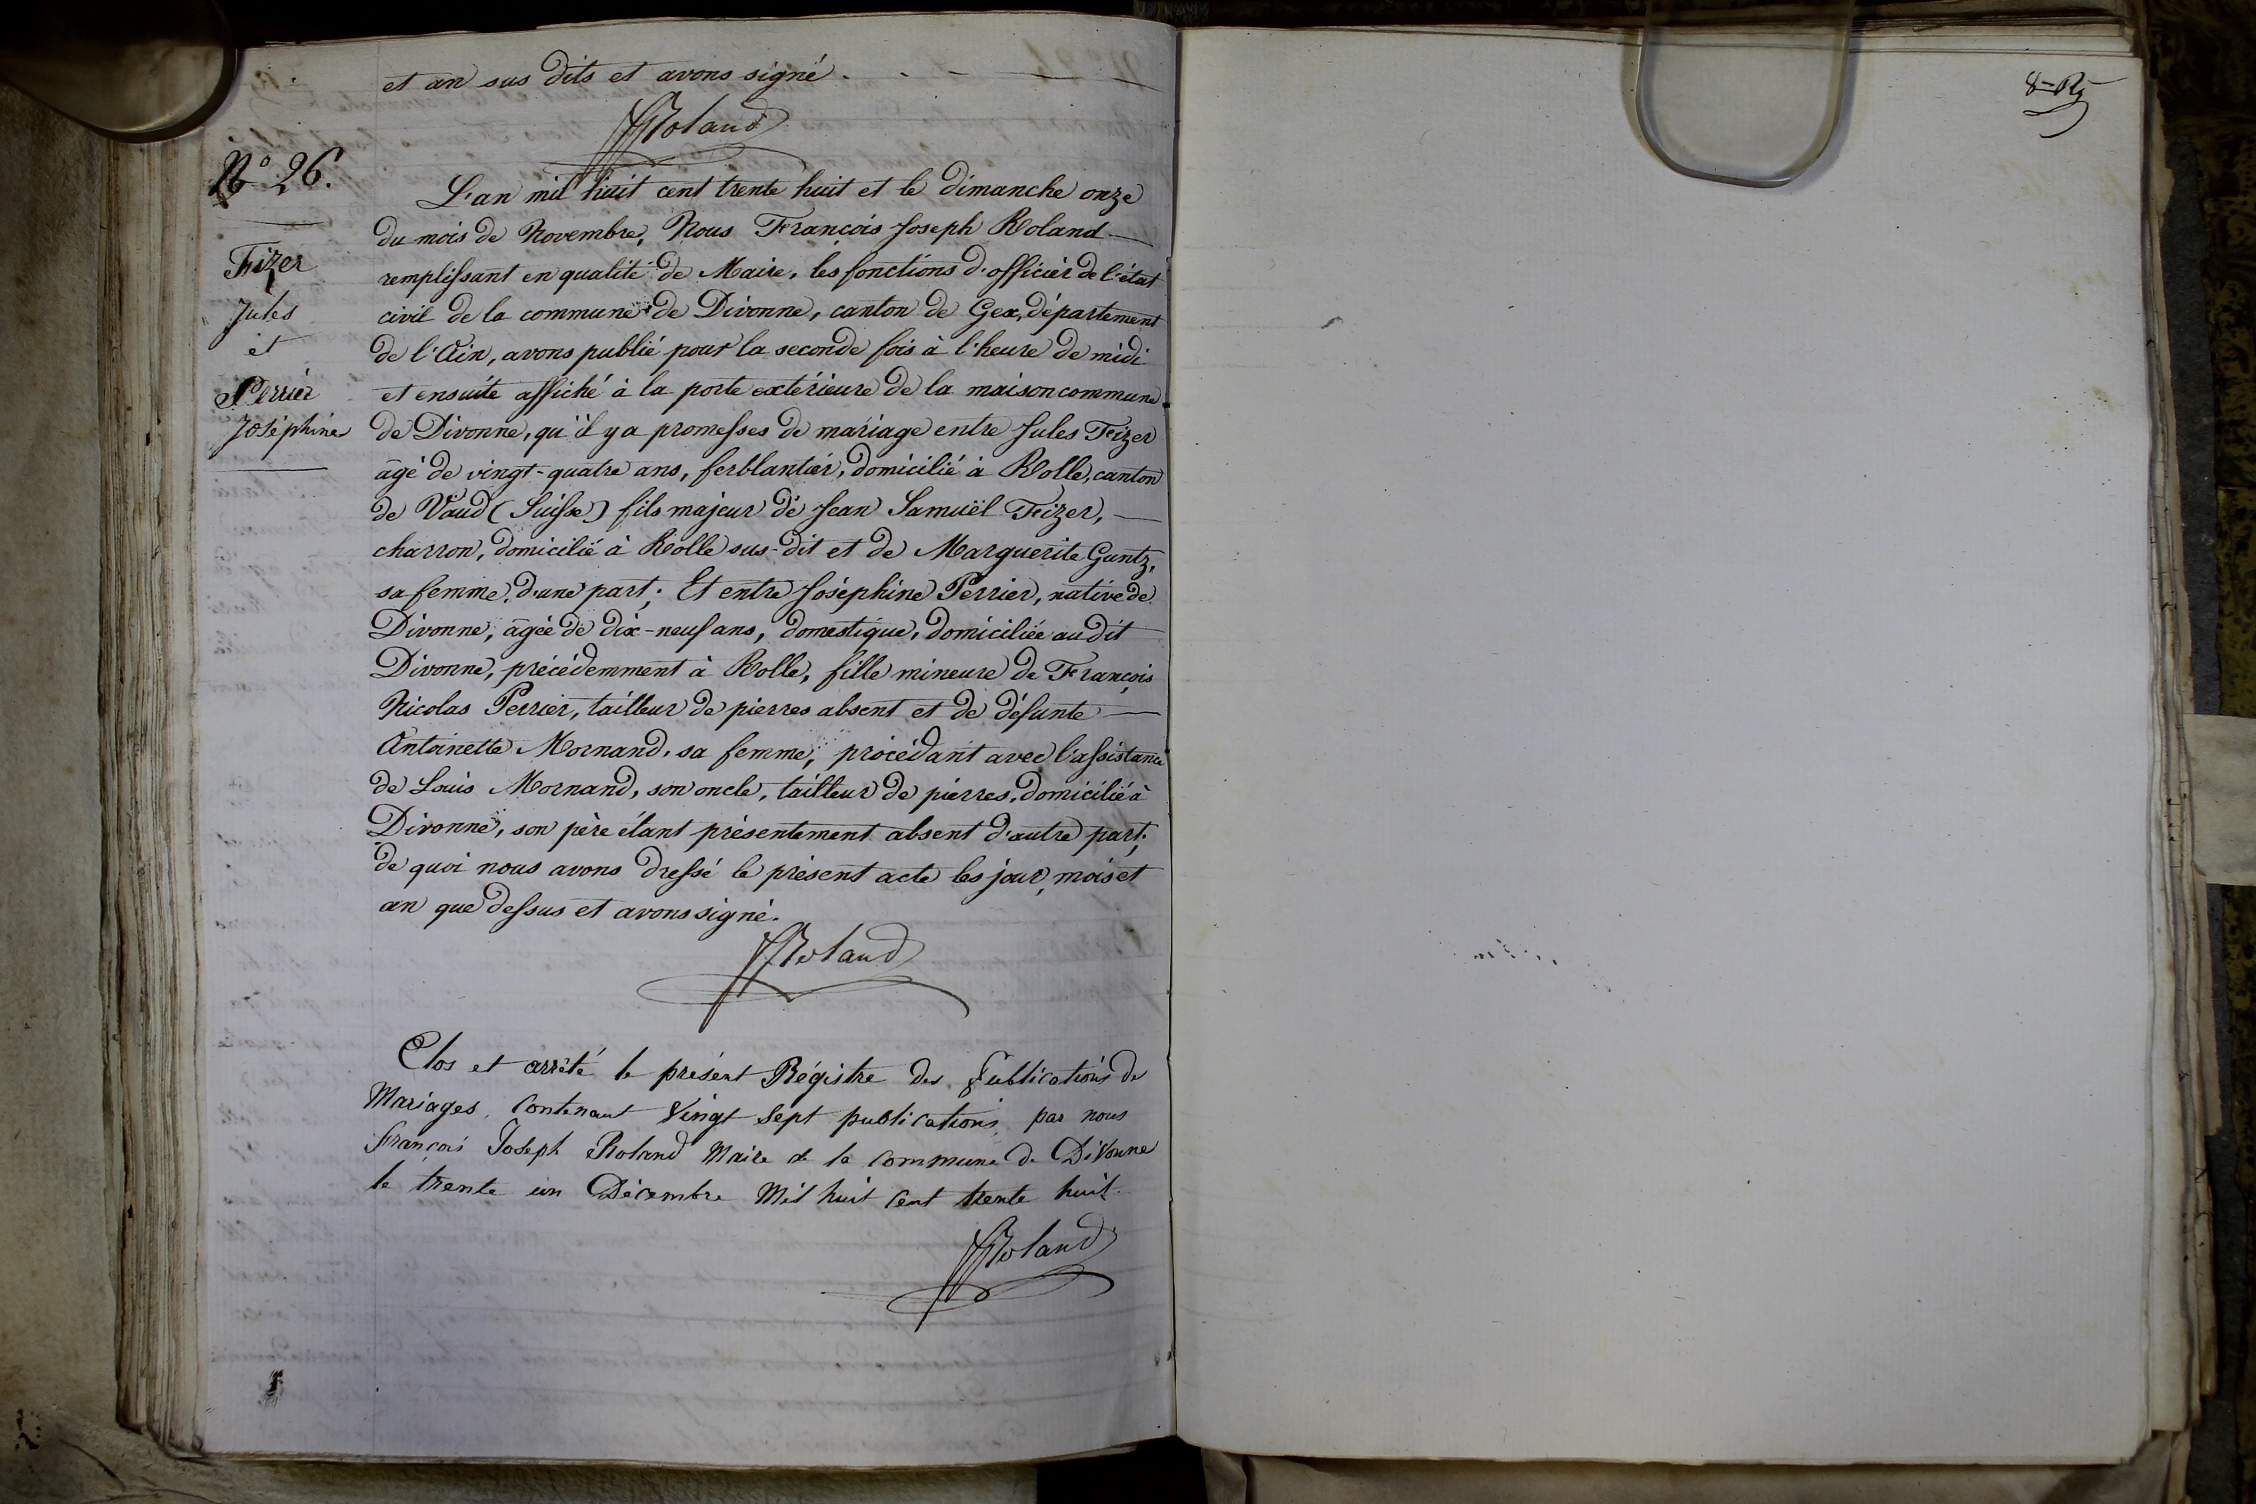 et an sus dits et avons signé.
FJRoland
N° 26.
Fizer
Jules
et
Perrier
Joséphine
L'an mil huit cent trente huit et le dimanche onze
du mois de Novembre, Nous François Joseph Roland
remplissant en qualité de Maire, les fonctions d'officier de l'état
civil de la commune de Divonne, canton de Gex, département
de l'Ain, avons publié pour la seconde fois à l'heure de midi
et ensuite affiché à la porte extérieure de la maison commune
de Divonne, qu'il y a promesses de mariage entre Jules Fizer
âgé de vingt-quatre ans, ferblantier, domicilié à Rolle, canton
de Vaud (Suisse) fils majeur de Jean Samuël Fizer,
charron, domicilié à Rolle sus-dit et de Marguerite Guntz,
sa femme, d'une part; Et entre Joséphine Perrier, native de
Divonne, âgée de dix-neuf ans, domestique, domiciliée au dit
Divonne, précédemment à Rolle, fille mineure de François
Nicolas Perrier, tailleur de pierres absent et de défunte
Antoinette Mornand, sa femme, procédant avec l'assistance
de Louis Mornand, son oncle, tailleur de pierres, domicilié à
Divonne, son père étant présentement absent d'autre part;
de quoi nous avons dressé le présent acte les jour, mois et
an que dessus et avons signé.
FJRoland
Clos et arrêté le présent Régistre des Publications de
Mariages, contenant Vingt Sept publications, par nous
françois Joseph Roland Maire de la Commune de Divonne
le trente un Décembre Mil huit Cent trente huit.
FJRoland